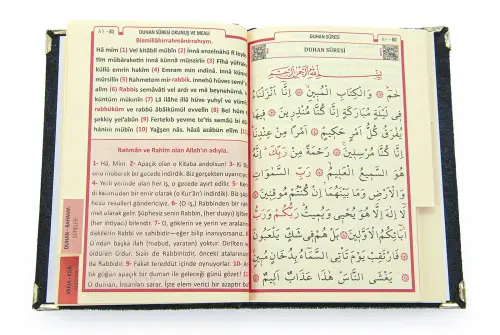 ٨١ -81
DUHAN SÛRESİ OKUNUŞ VE MEALİ
Bismillâhirrahmânirrahıym.
Hâ mîm (1) Vel kitâbil mübîn (2) İnnâ enzelnâhü fî leyle
tim mübâraketin innâ künnâ münzirîn (3) Fîhâ yüfraku
küllü emrin hakîm (4) Emram min indinâ. innâ künnâ
mürsilîn (5) Rahmetem mir rabbik, innehû hüves semî'ul
alîm (6) Rabbis semâvâti vel ardı ve mâ beynehümâ,
küntüm mûknîn (7) Lâ ilâhe illâ hüve yuhyî ve yümît,
rabbüküm ve rabbü âbâikümül evvelîn (8) Bel hüm fî
şekkiy yel'abûn (9) Fertekıb yevme te'tis semâü bi dü
hânim mübîn (10) Yağşen nâs, hâzâ azâbün elîm (11)
Rahmân ve Rahîm olan Allah'ın adıyla.
1- Hâ, Mîm. 2- Apaçık olan o Kitaba andolsun! 3- Ki Biz
onu mübarek bir gecede indirdik. Biz gerçekten uyarıcıyız.
4- Yerli yerinde olan her iş, o gecede ayırt edilir. 5- Ken
di katımızdan bir emir olarak (o Kur'ân'ı indirdik). Biz şüp
hesiz resulleri göndericiyiz. 6- (O iş,) Rabbinden bir rah
met olarak gelir. Şüphesiz senin Rabbin, (her duayı) işiten
(her ihtiyacı) bilendir. 7- O, göklerin ve yerin ve araların
dakilerin Rabbidir
O'ndan başka ilah (mabud, yaratan) yoktur. Dirilten ve
öldüren O'dur. Sizin de Rabbinizdir, önceki atalarınızın
da Rabbidir. 9- Fakat tereddüt içinde oynuyorlar. 10-
tık göğün apaçık bir duman ile geleceği günü gözet! 11-
O duman, insanları sarar. İşte elem verici bir azaptır bu.
DUHAN - RAHMAN
SÛRELERİ
DUHAN SÛRESİ
٨٠ -80
DUHAN SÛRESİ
بِسْمِ اللّٰهِ الرَّحْمٰنِ الرَّحِيمِ
حٰمٓ ۝ وَالْكِتَابِ الْمُبِينِ ۝ اِنَّٓا اَنْزَلْنَاهُ
فِى لَيْلَةٍ مُبَارَكَةٍ اِنَّا كُنَّا مُنْذِرِينَ ۝ فِيهَا
يُفْرَقُ كُلُّ اَمْرٍ حَكِيمٍ ۝ اَمْرًا مِنْ عِنْدِنَا
اِنَّا كُنَّا مُرْسِلِينَ ۝ رَحْمَةً مِنْ رَبِّكَ اِنَّهُ
هُوَ السَّمِيعُ الْعَلِيمُ ۝ رَبِّ السَّمٰوَاتِ
وَالْاَرْضِ وَمَا بَيْنَهُمَا اِنْ كُنْتُمْ مُوقِنِينَ ۝
لَٓا اِلٰهَ اِلَّا هُوَ يُحْيِى وَيُمِيتُ رَبُّكُمْ وَرَبُّ
اٰبَٓائِكُمُ الْاَوَّلِينَ ۝ بَلْ هُمْ فِى شَكٍّ يَلْعَبُونَ
فَارْتَقِبْ يَوْمَ تَاْتِى السَّمَٓاءُ بِدُخَانٍ مُبِينٍ
يَغْشَى النَّاسَ هٰذَا عَذَابٌ اَلِيمٌ ۝